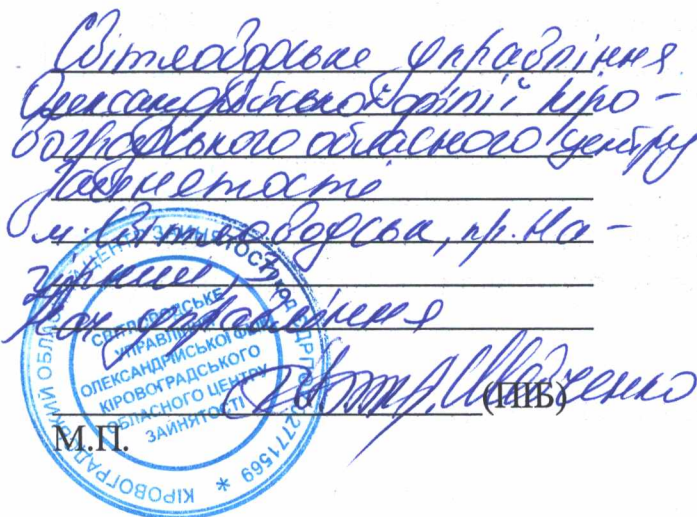 Світловодське управління
Олександрійської філії Кіро-
воградського обласного центру
зайнятості
м. Світловодськ, пр. На-
гірний,
Нач. управління
Шевченко
(ПІБ)
М.П.
СВІТЛОВОДСЬКЕ
УПРАВЛІННЯ
ОЛЕКСАНДРІЙСЬКОЇ ФІЛІЇ
КІРОВОГРАДСЬКОГО
ОБЛАСНОГО ЦЕНТРУ
ЗАЙНЯТОСТІ